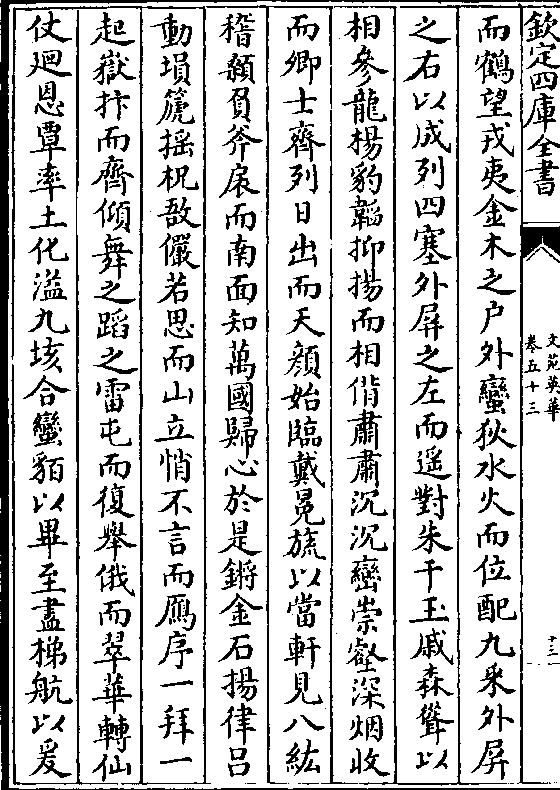 欽定四庫全書
文苑英華
卷五十三
十三
而鶴望戎夷金木之户外蠻狄水火而位配九采外屏
之右以成列四塞外屏之左而遥對朱干玉戚森聳以
相參龍楊豹韜抑揚而相偕肅肅沉沉巒崇壑深烟收
而卿士齊列日出而天顔始臨戴冕旒以當軒見八紘
稽顙負斧扆而南面知萬國歸心於是鏘金石揚律吕
動塤箎摇柷敔儼若思而山立悄不言而鴈序一拜一
起嶽抃而齊傾舞之蹈之雷屯而復舉俄而翠華轉仙
仗廻恩覃率土化溢九垓合蠻貊以畢至盡梯航以爰